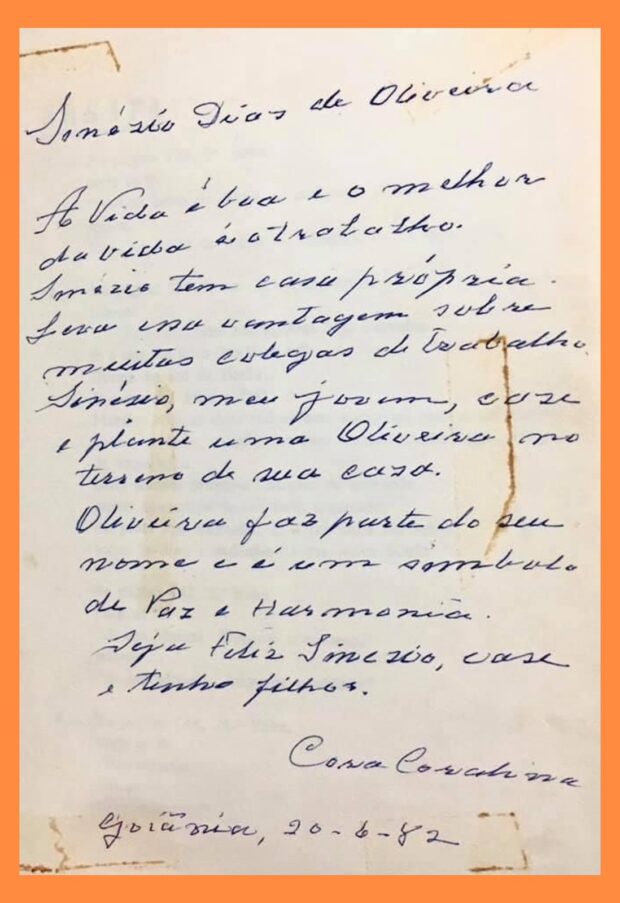 Sinézio Dias de Oliveira
A Vida é boa e o melhor
da vida é o trabalho.
Sinézio tem casa própria.
Leva essa vantagem sobre
muitos colegas de trabalho.
Sinézio, meu jovem, case
e plante uma Oliveira no
terreno de sua casa.
Oliveira faz parte do seu
nome e é um símbolo
de Paz e Harmonia.
Seja Feliz Sinézio, case
e tenha filhos.
Cora Coralina
Goiânia, 20-6-82